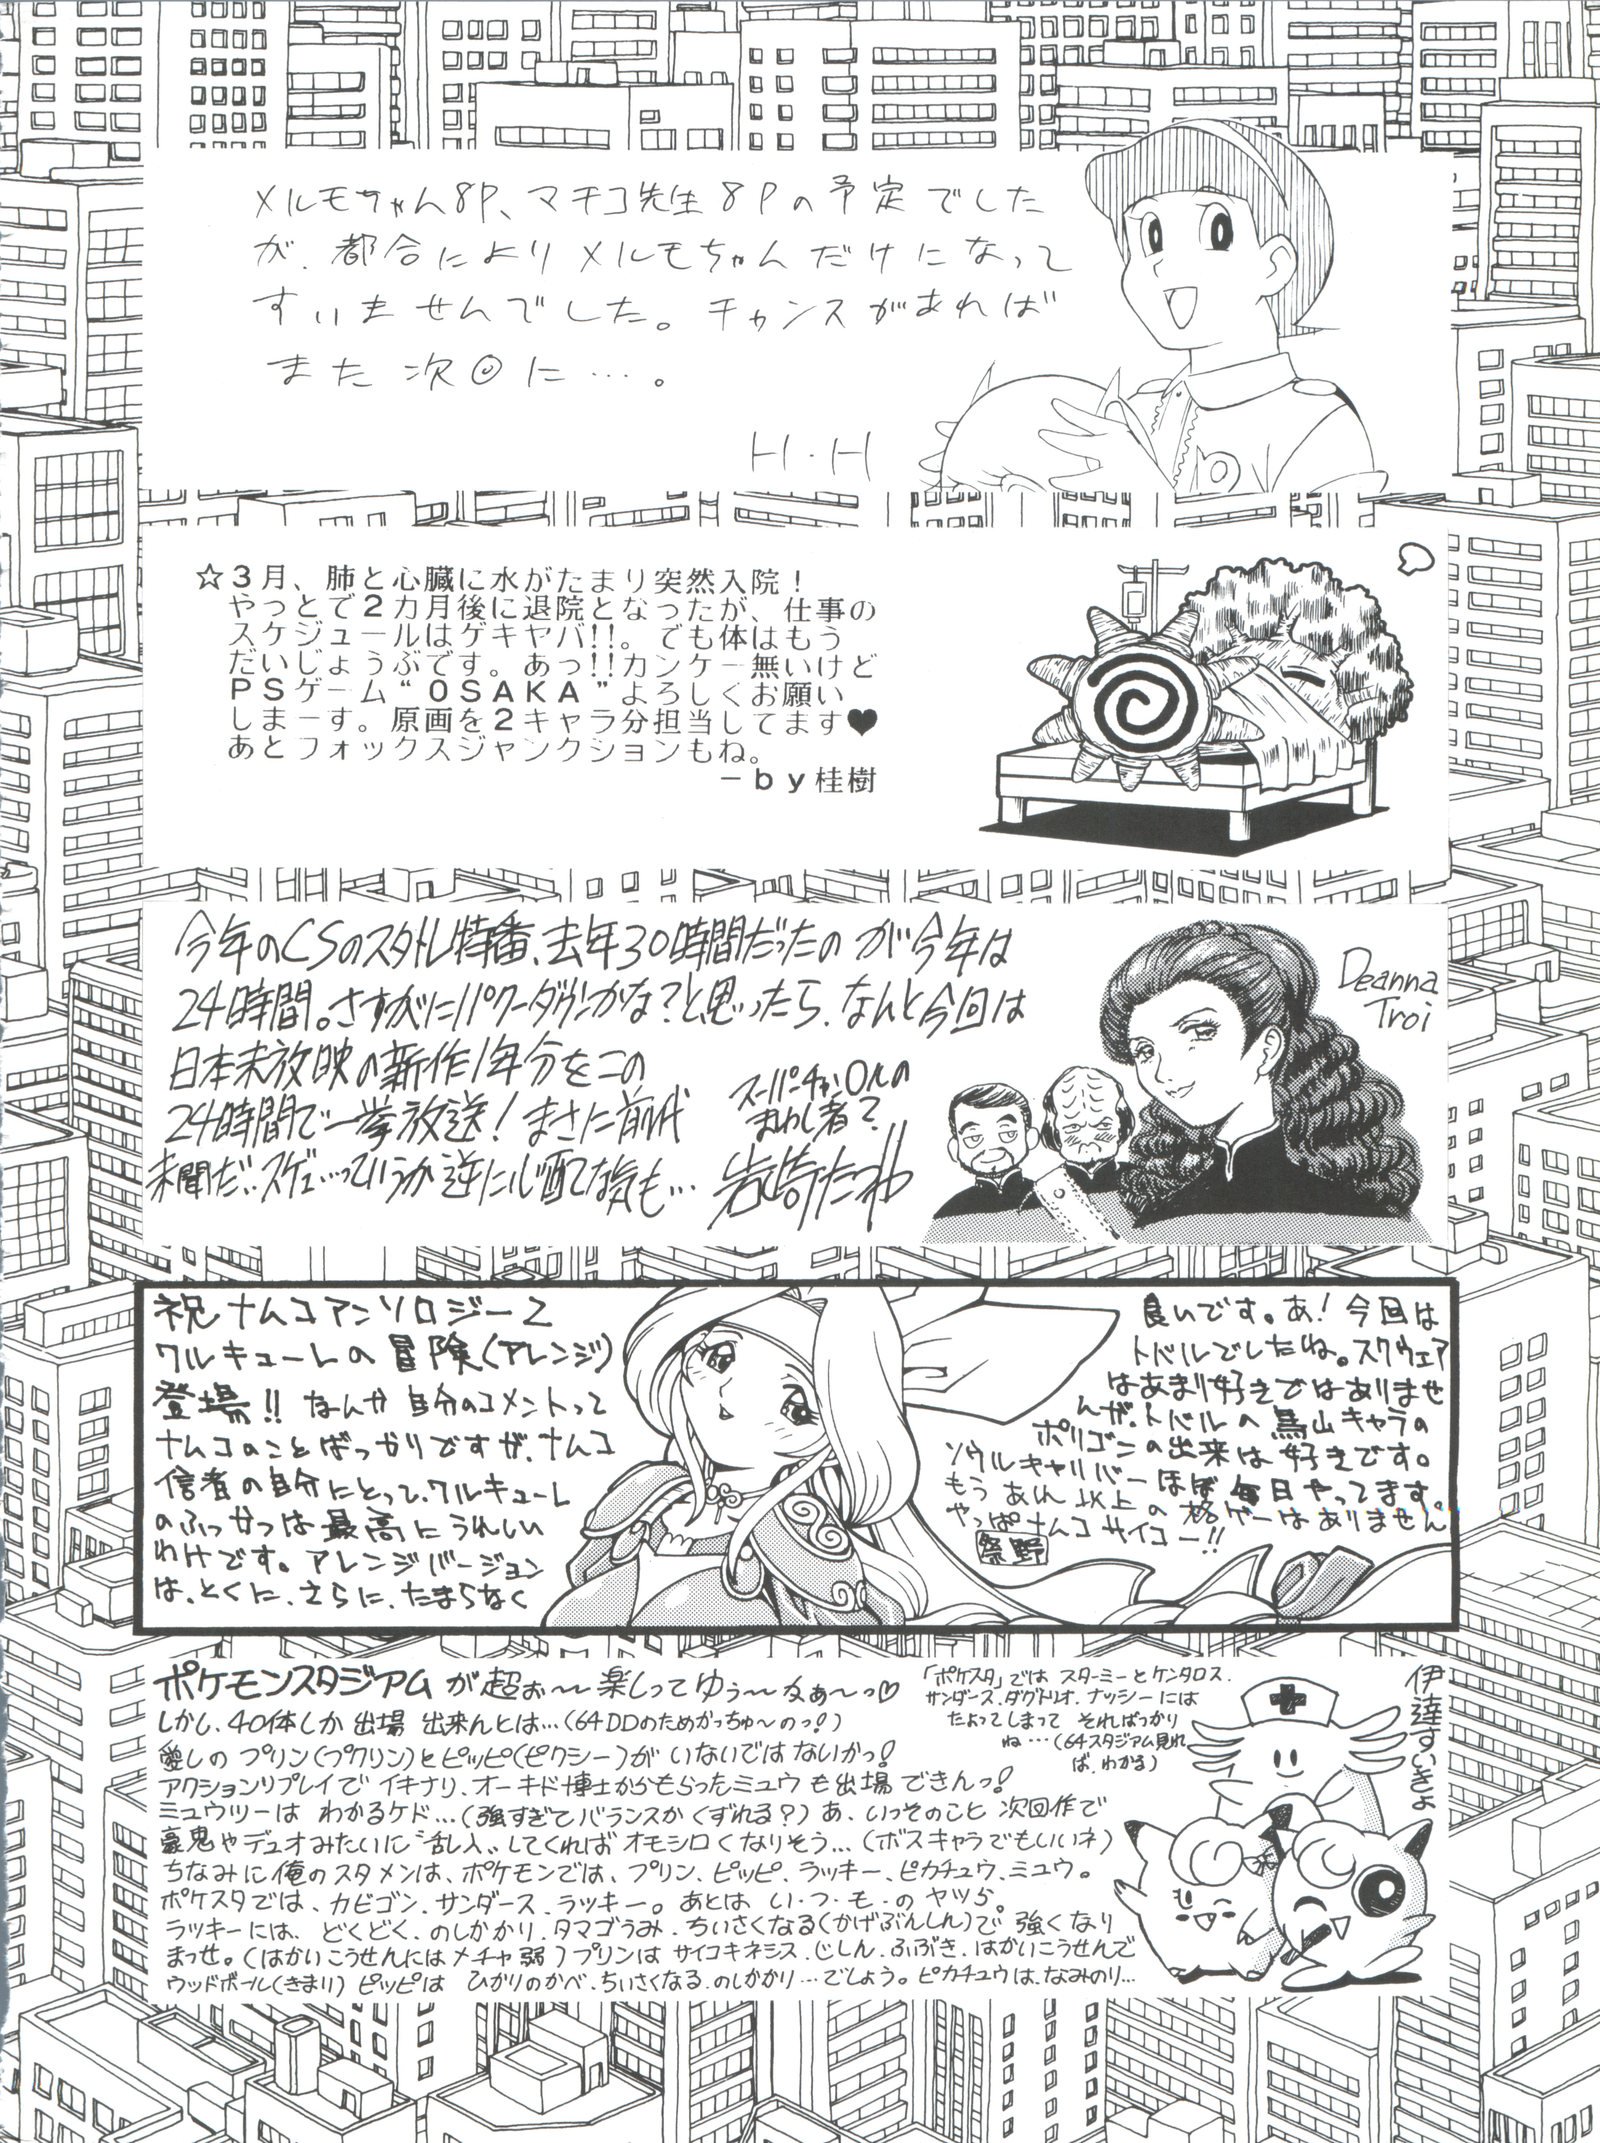 メルモちゃん8P、マチコ先生8Pの予定でした
が、都合によりメルモちゃんだけになって
すいませんでした。チャンスがあれば
また次回に…。
H・H
☆3月、肺と心臓に水がたまり突然入院!
やっとで2カ月後に退院となったが、仕事の
スケジュールはゲキヤバ!!。でも体はもう
だいじょうぶです。あっ!!カンケー無いけど
PSゲーム“OSAKA”よろしくお願い
しまーす。原画を2キャラ分担当してます♥
あとフォックスジャンクションもね。
－by桂樹
今年のCSのスタトレ特番、去年30時間だったのが今年は
24時間。さすがにパワーダウンかな?と思ったら、なんと今回は
日本未放映の新作1年分をこの
24時間で一挙放送!まさに前代
未聞だ‥スゲェ…っていうか逆に心配な気も…
スーパーチャンネルの
まわし者?
岩崎たつ
Deanna
Troi
祝ナムコアンソロジー2
ワルキューレの冒険(アレンジ)
登場!!なんか自分のコメントって
ナムコのことばっかりですが、ナムコ
信者の自分にとって、ワルキューレ
のふっかつは最高にうれしい
わけです。アレンジバージョン
は、とくに、さらに、たまらなく
良いです。あ!今回は
トバルでしたね。スクウェア
はあまり好きではありませ
んが、トバルの鳥山キャラの
ポリゴンの出来は好きです。
ソウルキャリバーほぼ毎日やってます。
もうあれ以上の格ゲーはありません
やっぱナムコサイコー!!
祭野
ポケモンスタジアムが超ぉ～楽しってゆぅ～かぁ～っ♡
しかし、40体しか出場出来んとは…(64DDのためがっちゅ～のっ!)
愛しのプリン(プクリン)とピッピ(ピクシー)がいないではないかっ!
アクションリプレイでイキナリ、オーキド博士からもらったミュウも出場できんっ!
ミュウツーはわかるケド…(強すぎてバランスがくずれる?)あ、いっそのこと次回作で
豪鬼やデュオみたいに“乱入”してくればオモシロくなりそう…(ボスキャラでもいいネ)
ちなみに俺のスタメンは、ポケモンでは、プリン、ピッピ、ラッキー、ピカチュウ、ミュウ。
ポケスタでは、カビゴン、サンダース、ラッキー。あとはい・つ・も・のヤツら。
ラッキーには、どくどく、のしかかり、タマゴうみ、ちいさくなる(かげぶんしん)で強くなり
まっせ。(はかいこうせんにはメチャ弱)プリンはサイコキネシス、じしん、ふぶき、はかいこうせんで
ウッドボール(きまり)ピッピはひかりのかべ、ちいさくなる、のしかかり…でしょう。ピカチュウは、なみのり…
「ポケスタ」ではスターミーとケンタロス、
サンダース、ダグトリオ、ナッシーには
たよってしまってそればっかり
ね…(64スタジアム見れ
ば、わかる)
伊達すいきょ